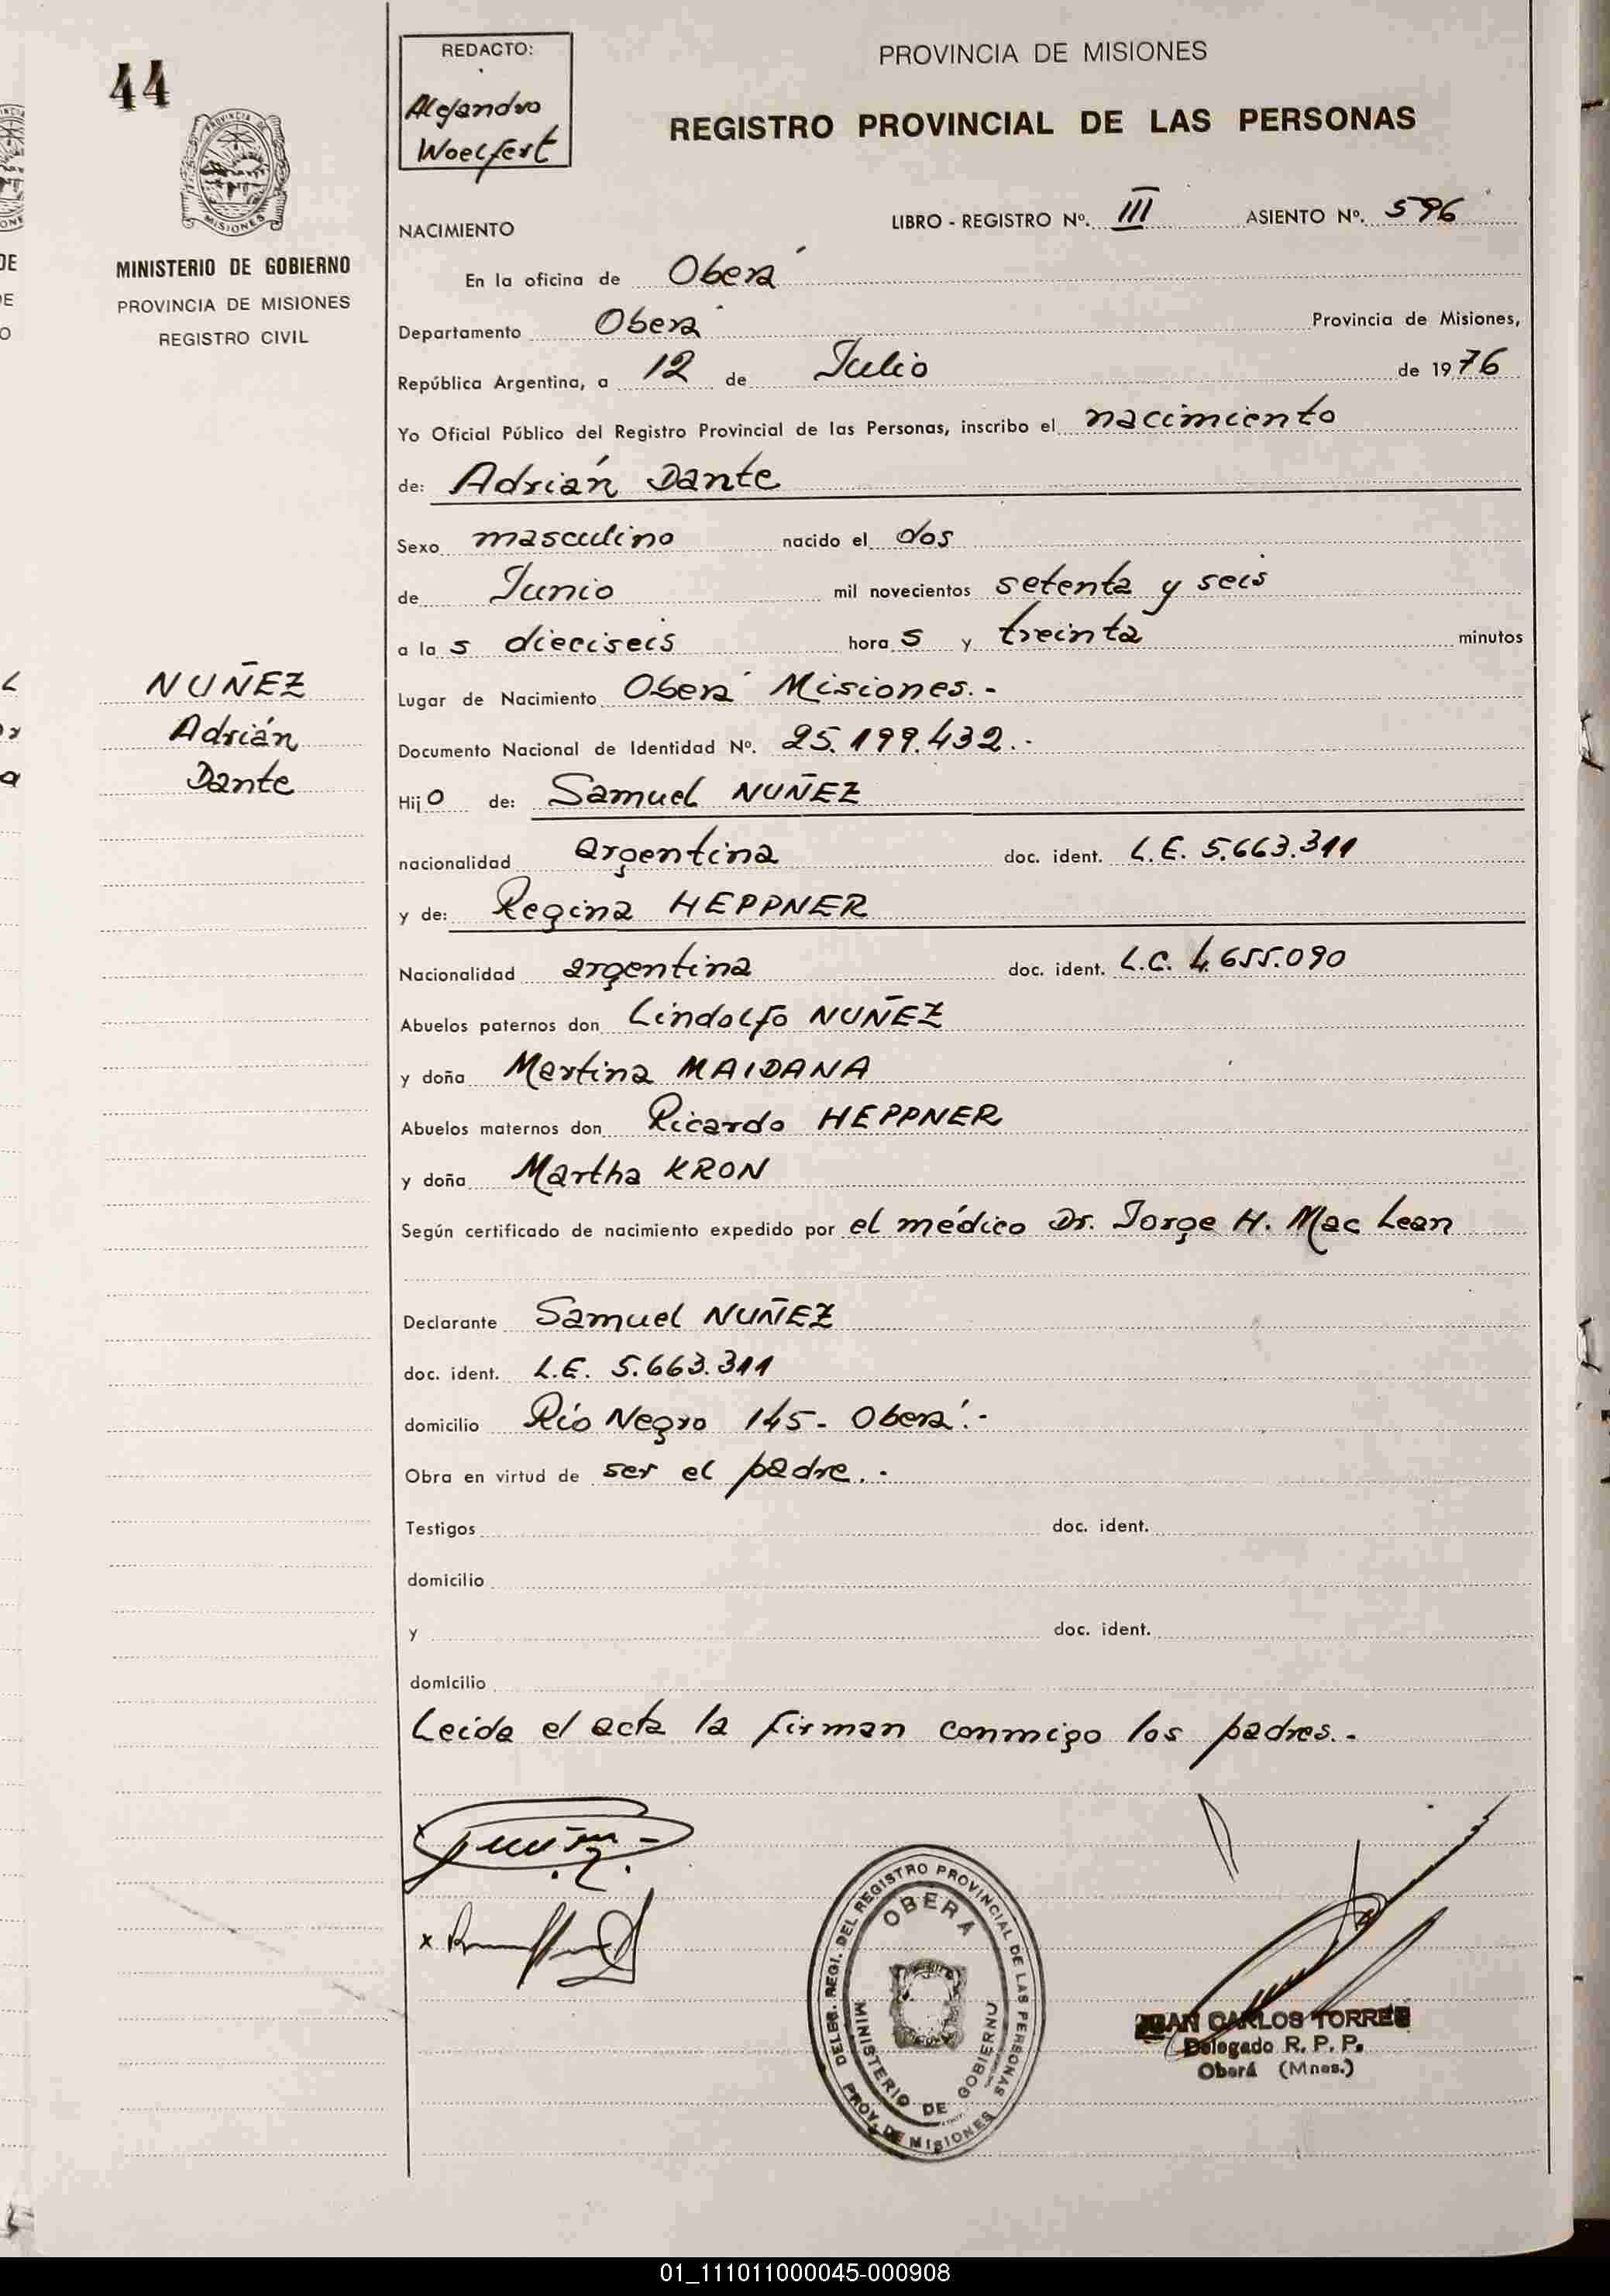 44
MINISTERIO DE GOBIERNO
PROVINCIA DE MISIONES
REGISTRO CIVIL
NUÑEZ
Adrián
Dante
REDACTO:
Alejandro
Woelfert
PROVINCIA DE MISIONES
REGISTRO PROVINCIAL DE LAS PERSONAS
NACIMIENTO LIBRO - REGISTRO Nº. III ASIENTO Nº. 596
En la oficina de Oberá
Departamento Oberá Provincia de Misiones,
República Argentina, a 12 de Julio de 1976
Yo Oficial Público del Registro Provincial de las Personas, inscribo el nacimiento
de: Adrián Dante
Sexo masculino nacido el dos
de Junio mil novecientos setenta y seis
a las dieciseis horas y treinta minutos
Lugar de Nacimiento Oberá Misiones.-
Documento Nacional de Identidad Nº. 25.199.432.-
Hijo de: Samuel NUÑEZ
nacionalidad argentina doc. ident. L.E. 5.663.311
y de: Regina HEPPNER
Nacionalidad argentina doc. ident. L.C. 4.655.090
Abuelos paternos don Lindolfo NUÑEZ
y doña Martina MAIDANA
Abuelos maternos don Ricardo HEPPNER
y doña Martha KRON
Según certificado de nacimiento expedido por el médico Dr. Jorge H. Mac Lean
Declarante Samuel NUÑEZ
doc. ident. L.E. 5.663.311
domicilio Río Negro 145- Oberá.-
Obra en virtud de ser el padre.-
Testigos doc. ident.
domicilio
y doc. ident.
domicilio
Leída el acta la firman conmigo los padres.-
DELEG. REGI. DEL REGISTRO PROVINCIAL DE LAS PERSONAS
OBERA
MINISTERIO DE GOBIERNO
PROV. DE MISIONES
JUAN CARLOS TORRES
Delegado R. P. P.
Oberá (Mnes.)
01_111011000045-000908